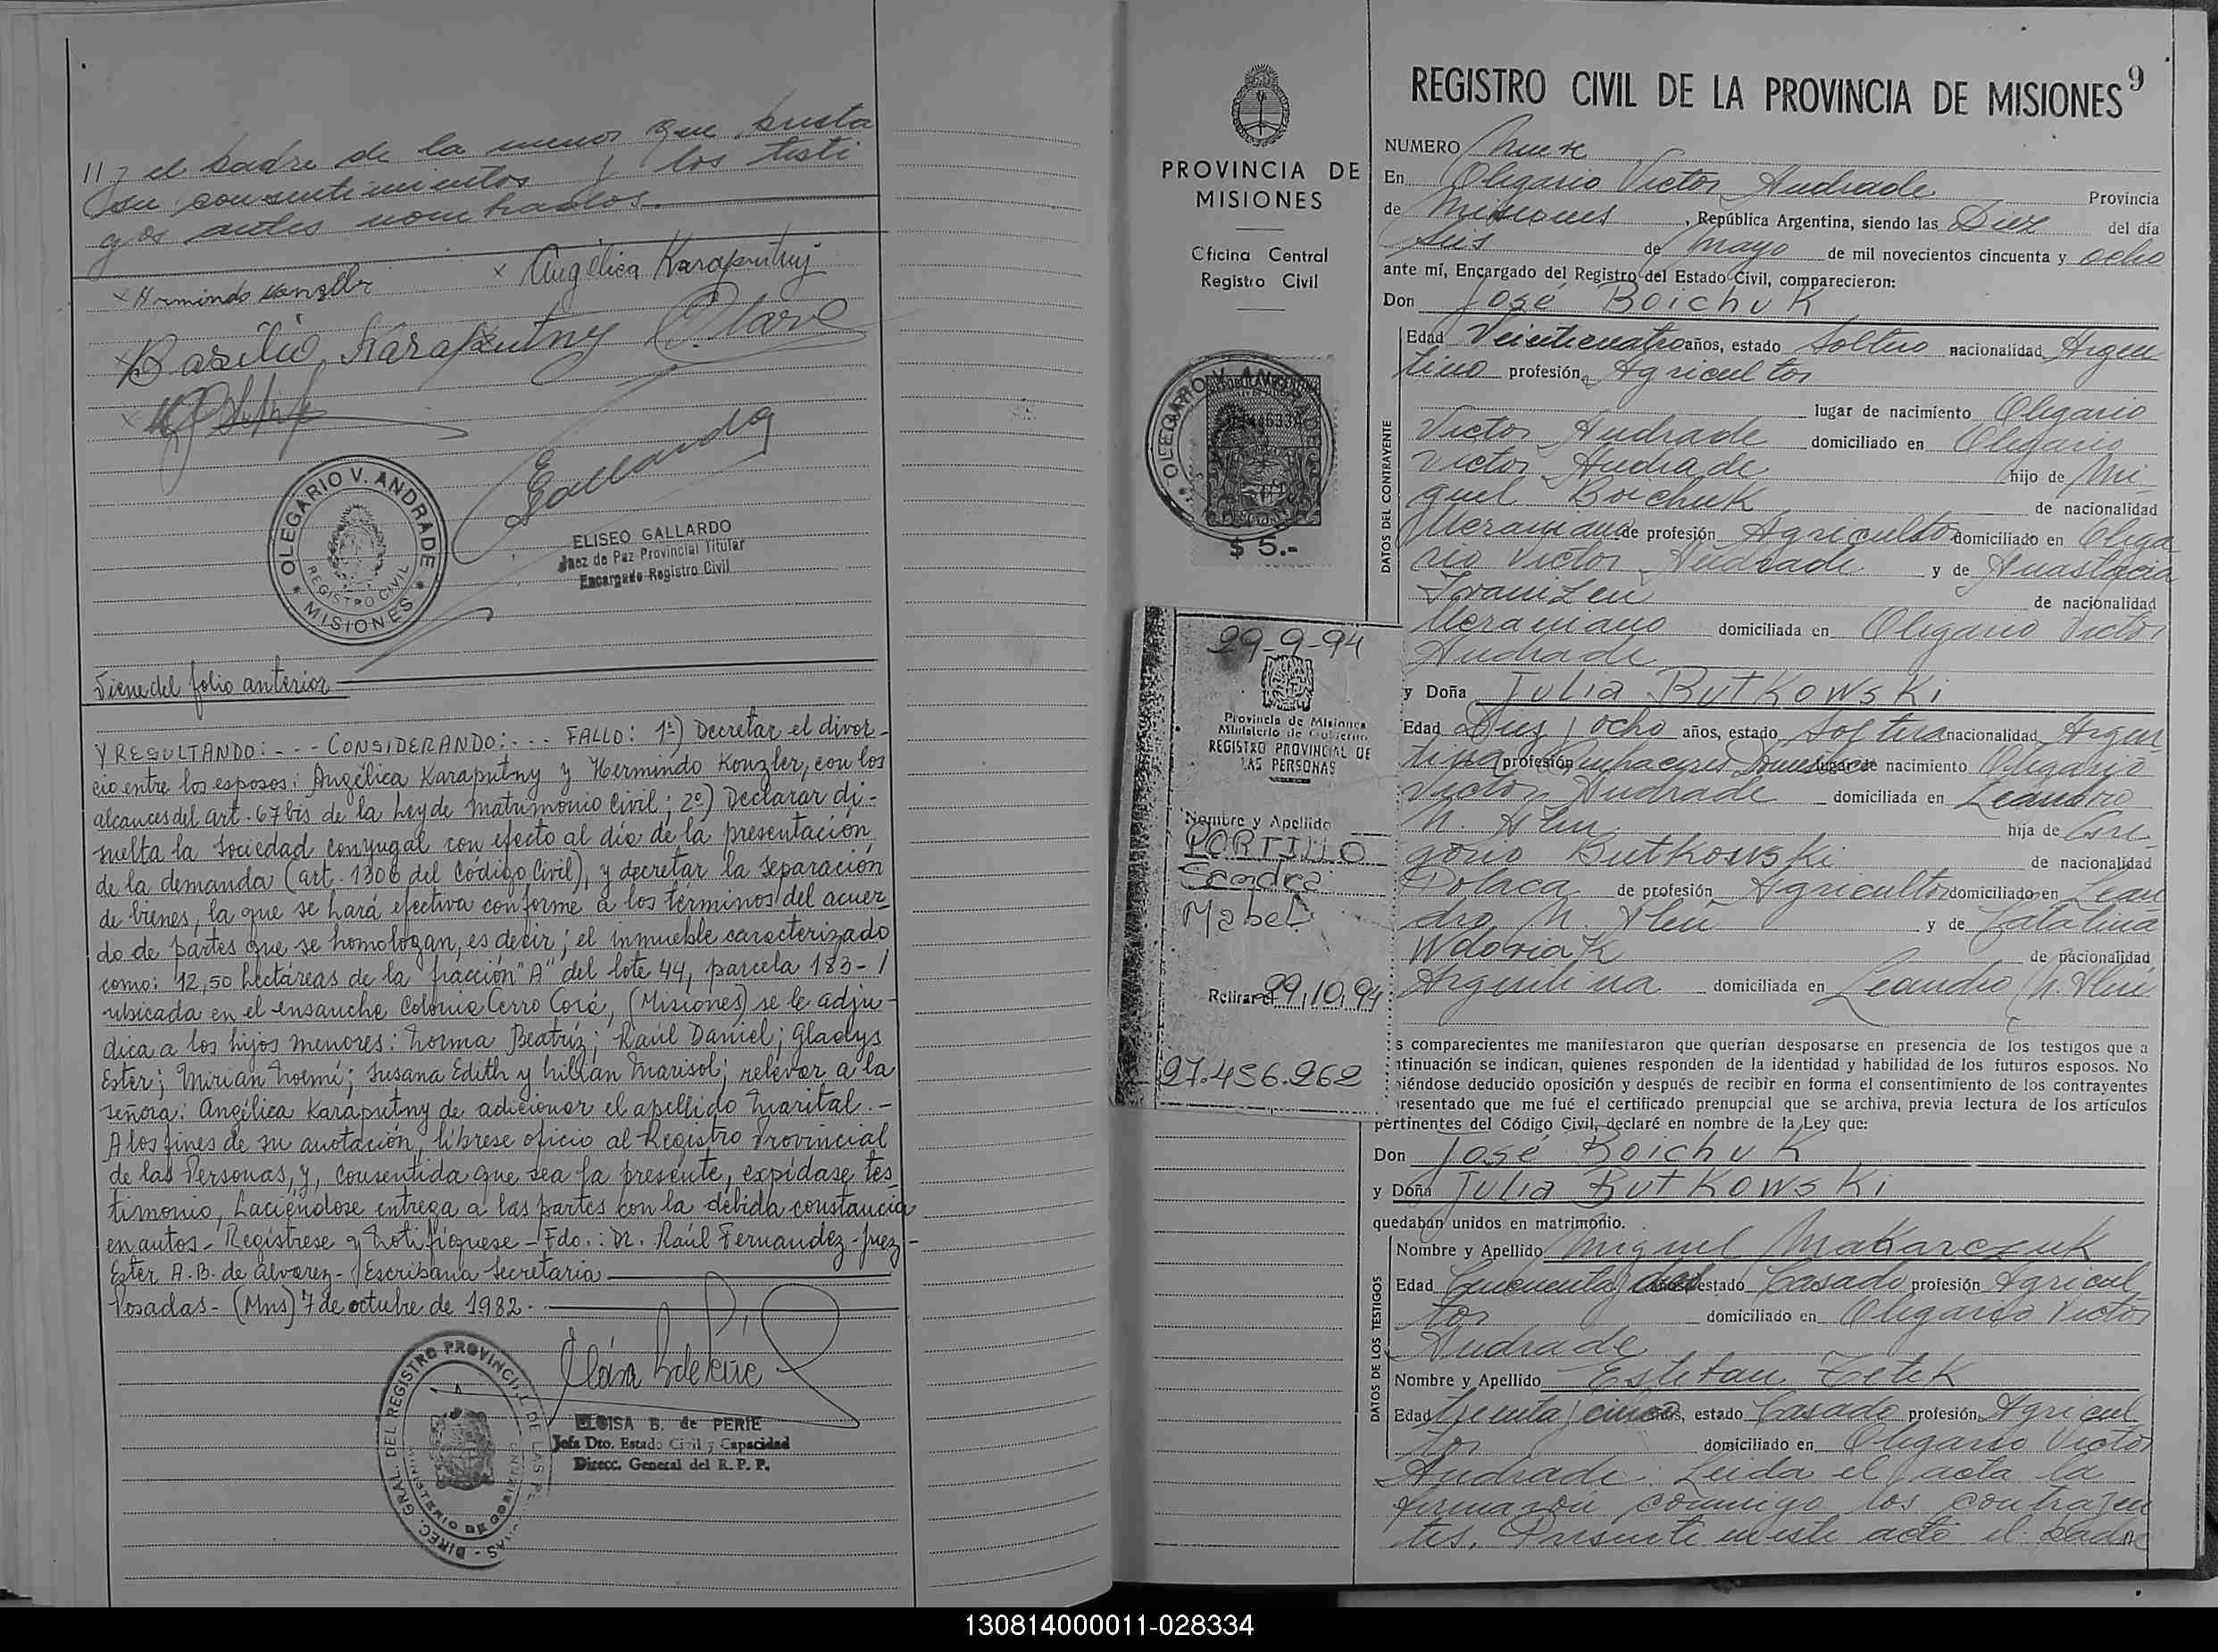 // y el padre de la menor que presta
su consentimientos y los testi
gos antes nombrados.
x Hermindo Konzler
x Angélica Karaputny
x Basilio Karaputny
Gallardo
OLEGARIO V. ANDRADE
REGISTRO CIVIL
* MISIONES *
ELISEO GALLARDO
Juez de Paz Provincial Titular
Encargado Registro Civil
Viene del folio anterior
Y RESULTANDO: - - - CONSIDERANDO: - - - FALLO: 1º) Decretar el divor-
cio entre los esposos: Angélica Karaputny y Hermindo Konzler, con los
alcances del art. 67 bis de la Ley de Matrimonio Civil; 2º) Declarar di-
suelta la sociedad conyugal con efecto al día de la presentación
de la demanda (art. 1306 del Código Civil), y decretar la separación
de bienes, la que se hará efectiva conforme a los términos del acuer
do de partes que se homologan, es decir; el inmueble caracterizado
como: 12,50 hectáreas de la fracción "A" del lote 44, parcela 183- /
ubicada en el ensanche Colonia Cerro Corá, (Misiones) se le adju-
dica a los hijos menores: Norma Beatríz; Raúl Daniel; Gladys
Ester; Mirian Noemí; Susana Edith y Lilian Marisol; relevar a la
señora: Angélica Karaputny de adicionar el apellido marital. -
A los fines de su anotación, líbrese oficio al Registro Provincial
de las Personas, y, consentida que sea la presente, expídase tes
timonio, haciéndose entrega a las partes con la debida constancia
en autos - Regístrese y Notifíquese - Fdo.: Dr. Raúl Fernandez - Juez -
Ester A.B. de Alvarez - Escribana Secretaria
Posadas - (Mns) 7 de octubre de 1982 -
DIREC. GRAL. DEL REGISTRO PROVINCIAL DE LAS PERSONAS
MINISTERIO DE GOBIERNO
ELOISA B. de PERIE
Jefa Dto. Estado Civil y Capacidad
Direcc. General del R. P. P.
PROVINCIA DE
MISIONES
Oficina Central
Registro Civil
OLEGARIO V. ANDRADE
$ 5.-
29-9-94
Provincia de Misiones
Ministerio de Gobierno
REGISTRO PROVINCIAL DE
LAS PERSONAS
Nombre y Apellido
PORTILLO
Mabel
Retirar el 29/10/94
27.456.262
REGISTRO CIVIL DE LA PROVINCIA DE MISIONES 9
NUMERO Nueve
En Olegario Victor Andrade Provincia
de Misiones, República Argentina, siendo las Diez del día
seis de mayo de mil novecientos cincuenta y ocho
ante mí, Encargado del Registro del Estado Civil, comparecieron:
Don José Boichuk
DATOS DEL CONTRAYENTE
Edad Veinticuatro años, estado Soltero nacionalidad Argen
tino profesión Agricultor
lugar de nacimiento Olegario
Victor Andrade domiciliado en Olegario
Victor Andrade hijo de Mi
guel Boichuk de nacionalidad
Ucraniano de profesión Agricultor domiciliado en Olega
rio Victor Andrade y de Anastacia
de nacionalidad
Ucraniano domiciliada en Olegario Victor
Andrade
y Doña Julia Butkowski
Edad Diez y ocho años, estado Soltera nacionalidad Argen
tina profesión Quehaceres Domésticos lugar de nacimiento Olegario
Victor Andrade domiciliada en Leandro
N. Alen hija de Gre
gorio Butkowski de nacionalidad
Polaca de profesión Agricultor domiciliado en Lean
dro N. Alen y de Catalina
Wdoviak de nacionalidad
Argentina domiciliada en Leandro N. Alen
s comparecientes me manifestaron que querían desposarse en presencia de los testigos que a
ntinuación se indican, quienes responden de la identidad y habilidad de los futuros esposos. No
iéndose deducido oposición y después de recibir en forma el consentimiento de los contrayentes
resentado que me fué el certificado prenupcial que se archiva, previa lectura de los artículos
pertinentes del Código Civil, declaré en nombre de la Ley que:
Don José Boichuk
y Doña Julia Butkowski
quedaban unidos en matrimonio.
DATOS DE LOS TESTIGOS
Nombre y Apellido Miguel Makarczuk
Edad Cincuenta y dos años estado Casado profesión Agricul
tor domiciliado en Olegario Victor
Andrade
Nombre y Apellido Esteban Tetek
Edad treinta y cinco años, estado Casado profesión Agricul
tor domiciliado en Olegario Victor
Andrade. Leida el acta la
firmaron conmigo los contrayen
tes. Presente en este acto el padre
130814000011-028334